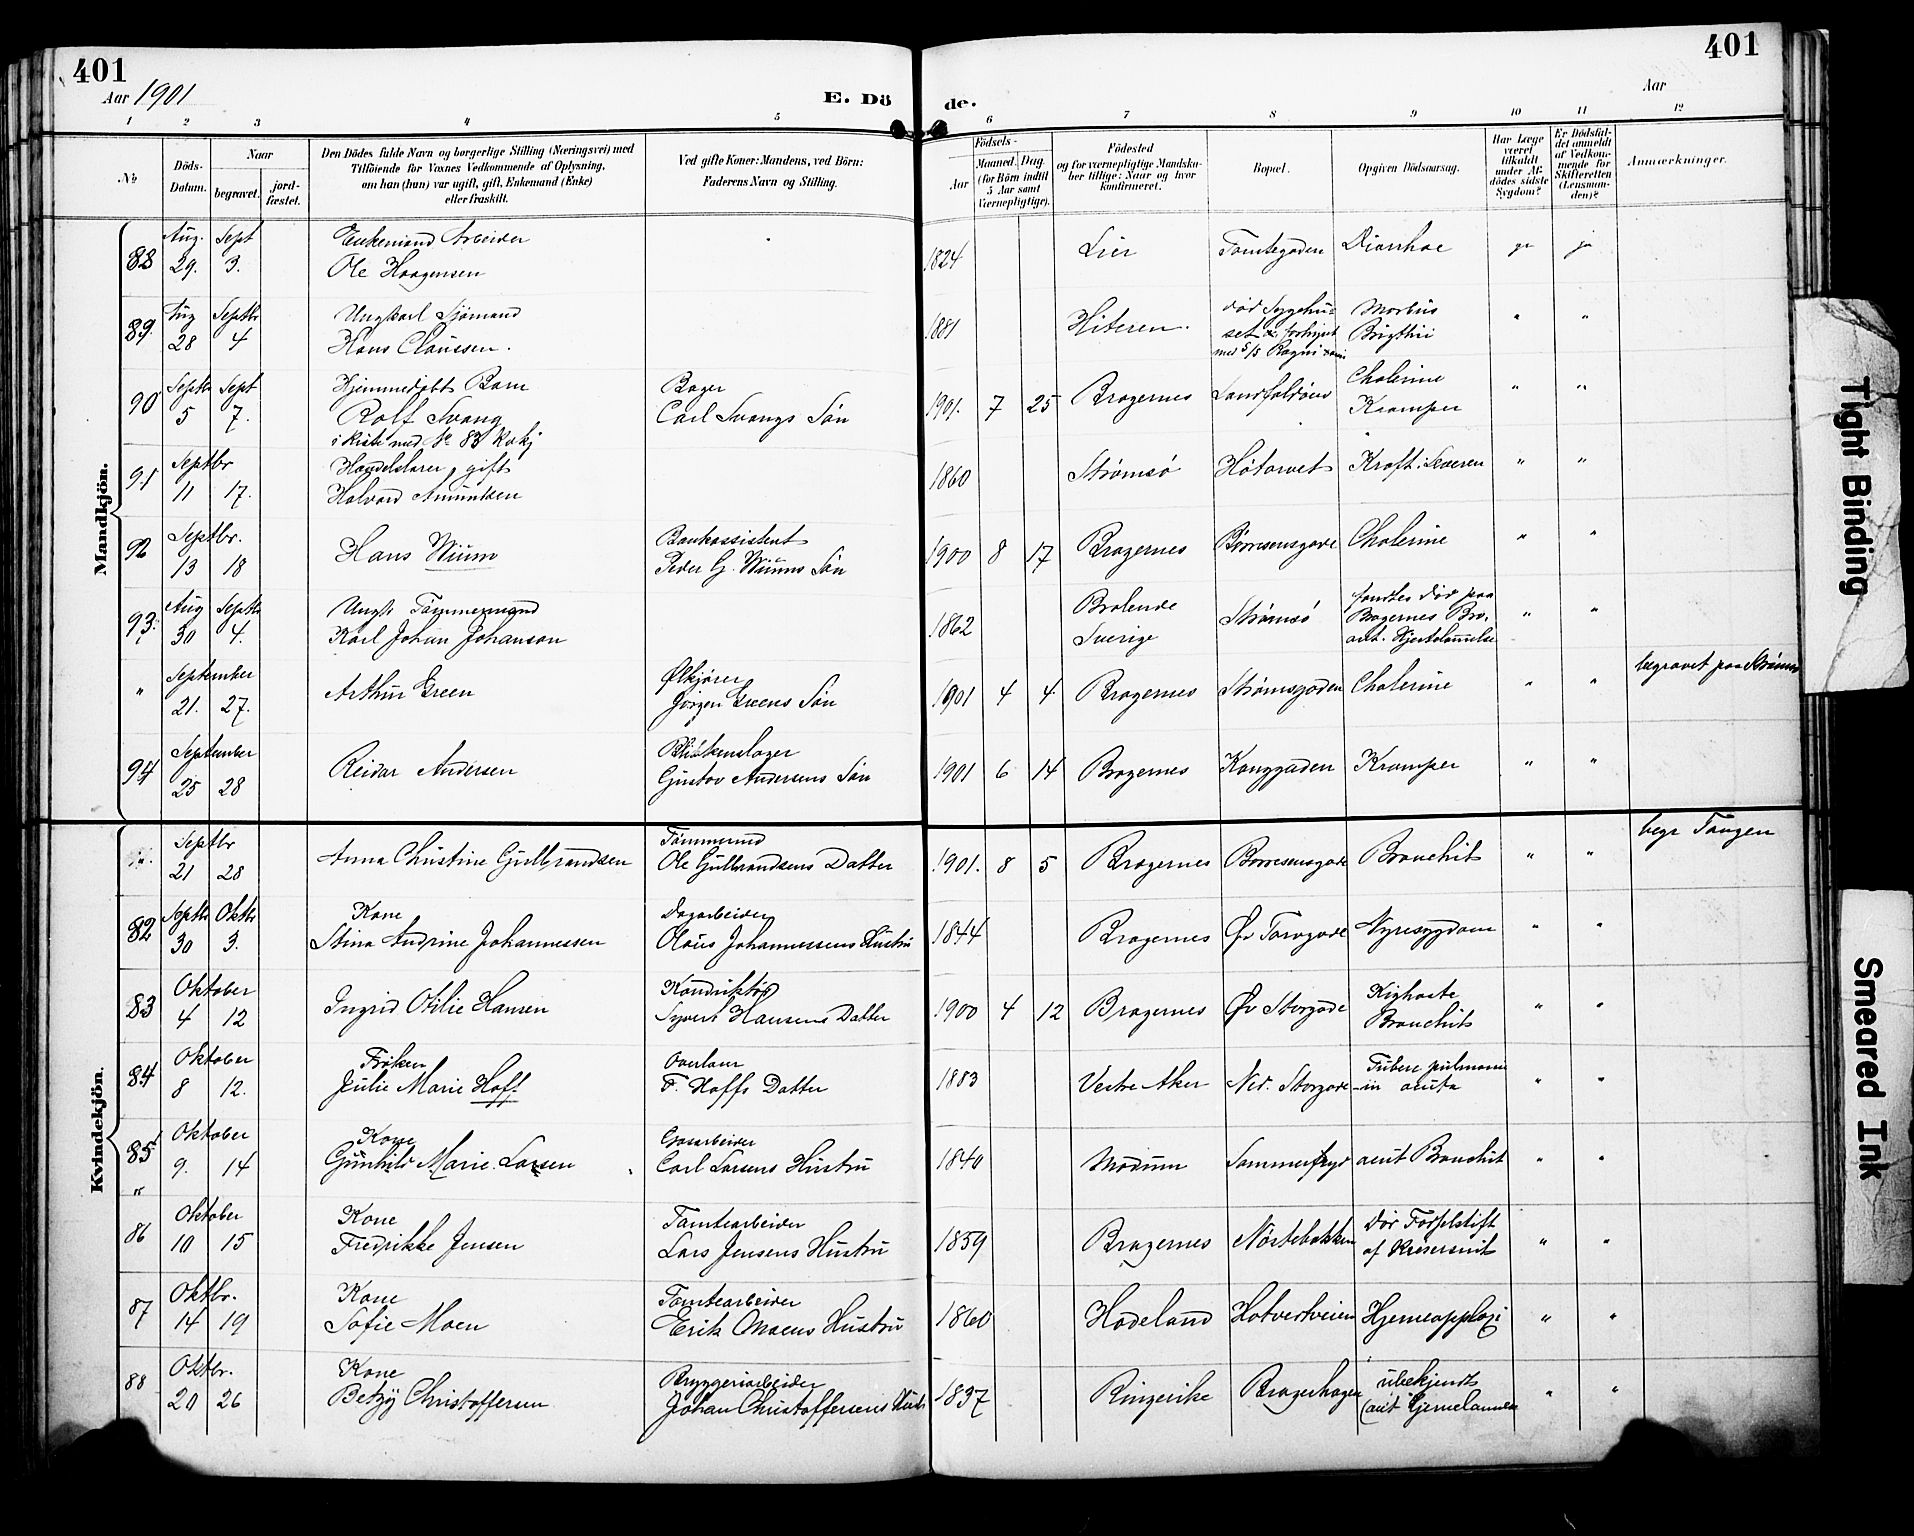 401
401
Aar 1901
E. Dö
de.
Aar
1 2 3 4 5 6 7 8 9 10 11 12
No
Döds-Datum.
Naar
begravet.
jord-fæstet.
Den Dödes fulde Navn og borgerlige Stilling (Næringsvei) med
Tilföiende for Voxnes Vedkommende af Oplysning,
om han (hun) var ugift, gift, Enkemand (Enke)
eller fraskilt.
Ved gifte Koner: Mandens, ved Börn:
Faderens Navn og Stilling.
Födsels-
Aar
Maaned. Dag.
(for Börn indtil
5 Aar samt
Værnepligtige).
Födested
og for værnepligtige Mandska-
ber tillige: Naar og hvor
konfirmeret.
Bopæl.
Opgiven Dödsaarsag.
Har Læge
været
tilkaldt
under Af-
dödes sidste
Sygdom?
Er Dödsfal-
det anmeldt
af Vedkom-
mende for
Skifteretten
(Lensman-
den)?
Anmærkninger.
Mandkjön.
88 Aug. 29. Sept 3. Enkemand Arbeider
Ole Haagensen
1824 Lier Tomtegaden Diarrhoe ja ja
89 Aug 28 Septbr 4 Ungkarl Sjömand
Hans Claussen.
1881 Hiteren. død Sygehu-
set Morbus
Brigthii " "
90 Septbr 5 Sept 7. Hjemmedøbt Barn
Rolf Svang
i Kiste med No 83 Kvkj
Bager
Carl Svangs Søn
1901. 7 25 Bragernes Landfaldöen Cholerine
Kramper " "
91 Septbr 11 17. Handelslærer, gift
Halvard Amundsen
1860 Strømsö Høtorvet Kræft i Leveren " "
92 Septbr. 13 18 Hans Wium
Bankassistent
Peder G. Wiums Søn
1900 8 17 Bragernes Børresensgade Cholerine " "
93. Aug 30 Septbr 4. Ungk. Tømmermand
Karl Johan Johanson
1862 Brolende
Sverige Strømsö fandtes død paa
Bragernes Bro,
ant. Hjertelammelse " "
" September 21. 27. Arthur Green
Ølkjører
Jørgen Greens Søn
1901 4 4 Bragernes Strømsgaden Cholerine " " begravet paa Strømsø
94 September 25 28 Reidar Andersen
Blikkenslager
Gustav Andersens Søn
1901 6 14 Bragernes Konggaden Kramper " "
Kvindekjön.
Septbr 21 28 Anna Christine Gulbrandsen
Tømmermd
Ole Gulbrandsens Datter
1901. 8 5 Bragernes Børresensgade Bronchit " " begr Tangen
82 Septbr 30 Oktbr 3. Kone
Stina Andrine Johannessen
Dagarbeider
Olaus Johannessens Hustru
1844 Bragernes Øv Torvgade Nyresygdom " "
83 Oktober 4 12 Ingrid Otilie Hansen
Konduktør
Syvert Hansens Datter
1900 4 12 Bragernes Øv Storgade Kighoste
Bronchit " "
84 Oktober 8 12. Frøken
Julie Marie Hoff
Overlærer
F. Hoffs Datter
1883 Vestre Aker Ned. Storgade acuta " "
85 Oktober 9. 14 Kone
Gunhild Marie Larsen
Gasarbeider
Carl Larsens Hustru
1840 Modum Sommerfryd acut Bronchit " "
86 Oktober 10 15 Kone
Fredrikke Jensen
Tomtearbeider
Lars Jensens Hustru
1859 Bragernes Nøstebakken
" "
87 Oktbr. 14 19 Kone
Sofie Moen
Tomtearbeider
Erik Moens Hustru
1860 Hadeland Hotvedtveien Hjerneapplexi " "
88 Oktbr. 20 26 Kone
Betzy Christoffersen
Bryggeriarbeider
Johan Christoffersens Hustr
1837 Ringerike Bragerhagen ubekjendt
(ant Hjertelammelse " "
Tight Binding
Smeared Ink